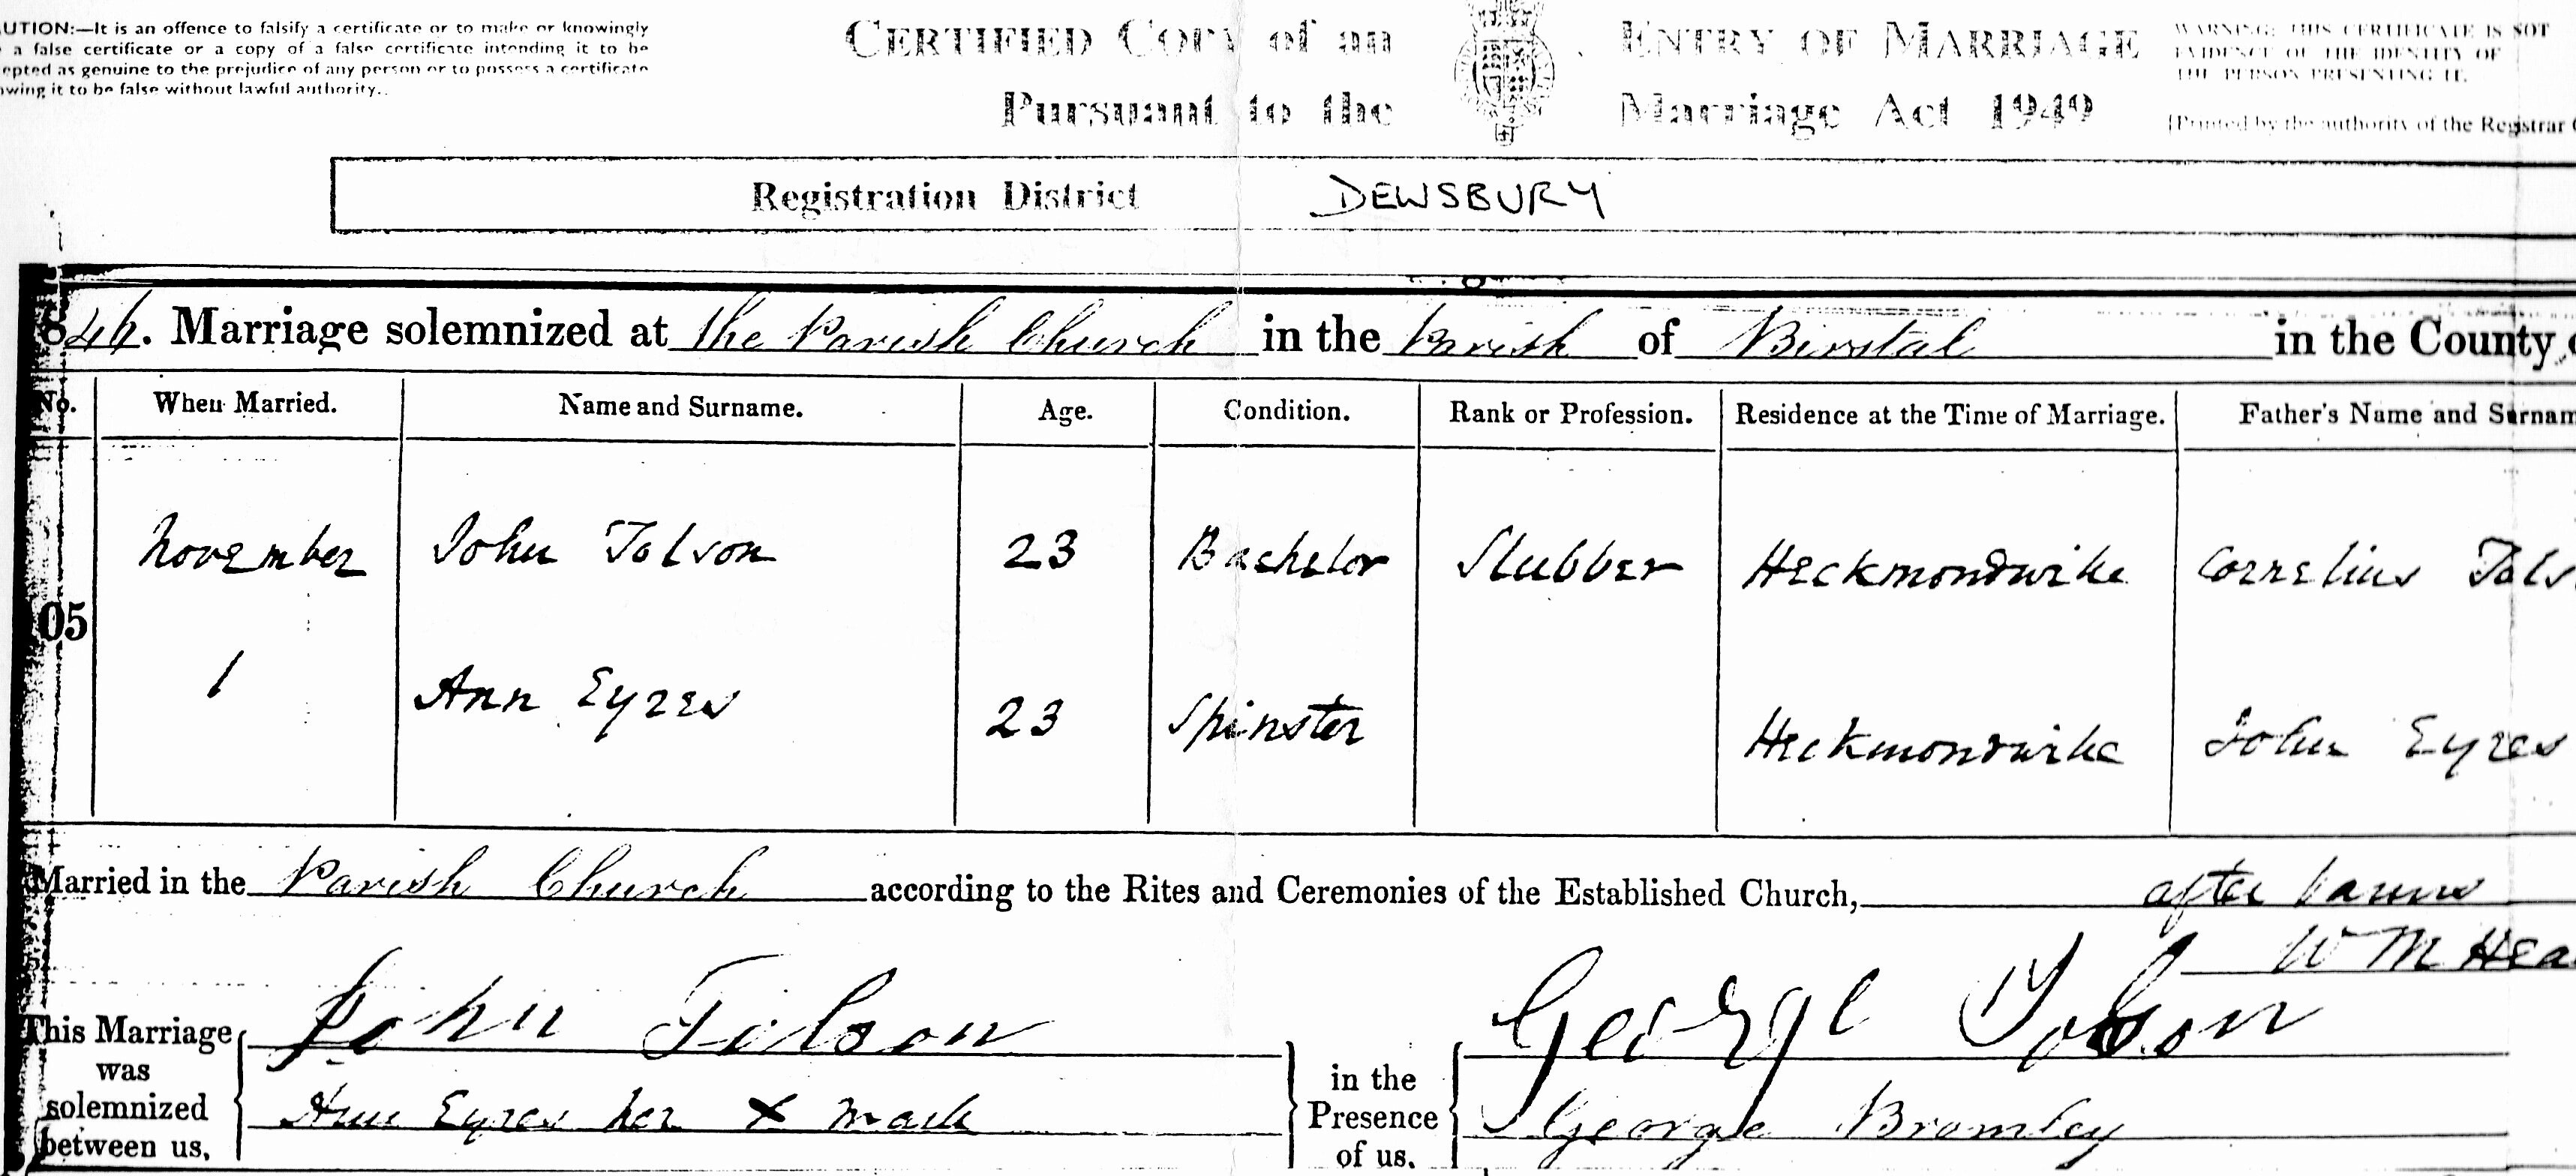 UTION:—It is an offence to falsify a certificate or to make or knowingly
a false certificate or a copy of a false certificate intending it to be
epted as genuine to the prejudice of any person or to possess a certificate
owing it to be false without lawful authority.
CERTIFIED COPY of an ENTRY OF MARRIAGE
Pursuant to the Marriage Act 1949
WARNING: THIS CERTIFICATE IS NOT
EVIDENCE OF THE IDENTITY OF
THE PERSON PRESENTING IT.
[Printed by the authority of the Registrar
Registration District DEWSBURY
Marriage solemnized at the Parish Church in the Parish of Birstal in the County
No. When Married. Name and Surname. Age. Condition. Rank or Profession. Residence at the Time of Marriage. Father's Name and Surnam
November John Tolson 23 Bachelor Slubber Heckmondwike Cornelius Tols
05
1 Ann Eyres 23 Spinster Heckmondwike John Eyres
Married in the Parish Church according to the Rites and Ceremonies of the Established Church, after banns
W M Hea
This Marriage was solemnized between us,
John Tolson
Ann Eyres her X mark
in the Presence of us,
George Tolson
George Bromley